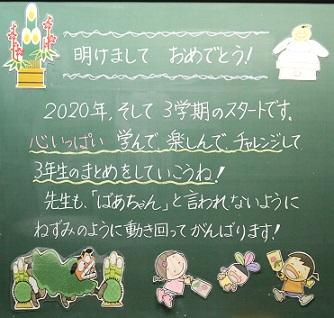 明けまして おめでとう!
2020年,そして 3学期のスタートです。
心いっぱい 学んで 楽しんで チャレンジして
3年生のまとめをしていこうね!
先生も、「ばあちゃん」と言われないように
ねずみのように動き回ってがんばります!